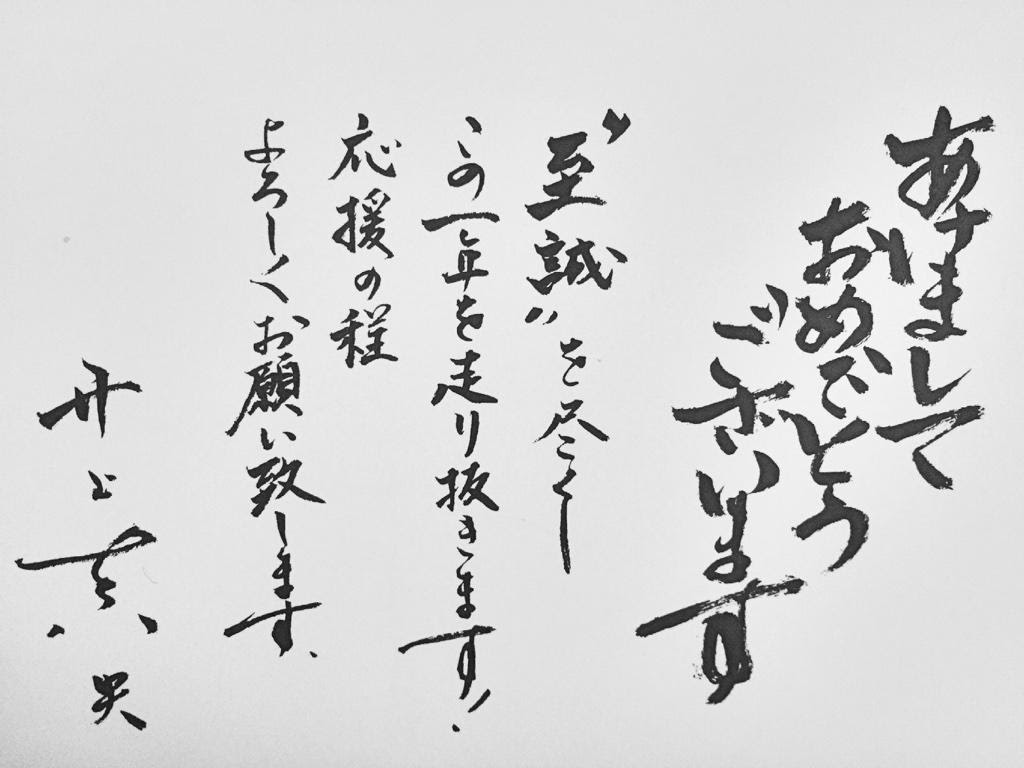 あけまして
おめでとう
ございます
“至誠”を尽くし
この一年を走り抜きます!
応援の程
よろしくお願い致します、
井上貴史